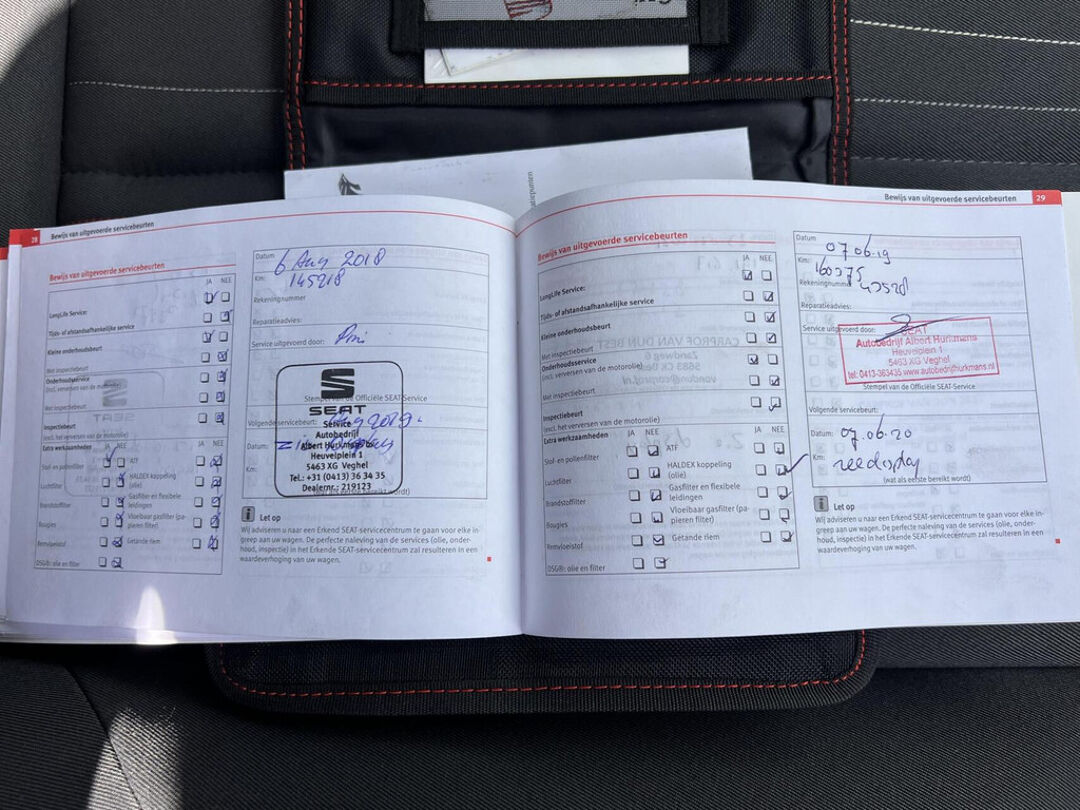 28 Bewijs van uitgevoerde servicebeurten
Bewijs van uitgevoerde servicebeurten
JA NEE
LongLife Service:
Tijds- of afstandsafhankelijke service
Kleine onderhoudsbeurt
Met inspectiebeurt
Onderhoudsservice
(incl. verversen van de motorolie)
Met inspectiebeurt
Inspectiebeurt
(excl. het verversen de motorolie)
Extra werkzaamheden JA NEE JA NEE
Stof- en pollenfilter ATF
Luchtfilter HALDEX koppeling
(olie)
Brandstoffilter Gasfilter en flexibele
leidingen
Bougies Vloeibaar gasfilter (pa-
pieren filter)
Remvloeistof Getande riem
DSG®: olie en filter
Datum
6 Aug 2018
Km:
145218
Rekeningnummer
Reparatieadvies:
Service uitgevoerd door:
Stempel van de Officiële SEAT-Service
SEAT
Service
Autobedrijf
Albert Hurkmans bv
Heuvelplein 1
5463 XG Veghel
Tel.: +31 (0413) 36 34 35
Dealernr.: 219123
Volgende servicebeurt:
Aug 2019.
Datum:
Km:
(wat als eerste bereikt wordt)
i Let op
Wij adviseren u naar een Erkend SEAT-servicecentrum te gaan voor elke in-
greep aan uw wagen. De perfecte naleving van de services (olie, onder-
houd, inspectie) in het Erkende SEAT-servicecentrum zal resulteren in een
waardeverhoging van uw wagen.
Bewijs van uitgevoerde servicebeurten 29
Bewijs van uitgevoerde servicebeurten
JA NEE
LongLife Service:
Tijds- of afstandsafhankelijke service
Kleine onderhoudsbeurt
Met inspectiebeurt
Onderhoudsservice
(incl. verversen van de motorolie)
Met inspectiebeurt
Inspectiebeurt
(excl. het verversen van de motorolie)
Extra werkzaamheden JA NEE JA NEE
Stof- en pollenfilter ATF
Luchtfilter HALDEX koppeling
(olie)
Brandstoffilter Gasfilter en flexibele
leidingen
Bougies Vloeibaar gasfilter (pa-
pieren filter)
Remvloeistof Getande riem
DSG®: olie en filter
Datum
07.06.19
Km:
160375
Rekeningnummer
43528
Reparatieadvies:
Service uitgevoerd door:
SEAT
Autobedrijf Albert Hurkmans
Heuvelplein 1
5463 XG Veghel
tel: 0413-363435 www.autobedrijfhurkmans.nl
Stempel van de Officiële SEAT-Service
Volgende servicebeurt:
Datum: 07.06.20
Km:
(wat als eerste bereikt wordt)
i Let op
Wij adviseren u naar een Erkend SEAT-servicecentrum te gaan voor elke in-
greep aan uw wagen. De perfecte naleving van de services (olie, onder-
houd, inspectie) in het Erkende SEAT-servicecentrum zal resulteren in een
waardeverhoging van uw wagen.